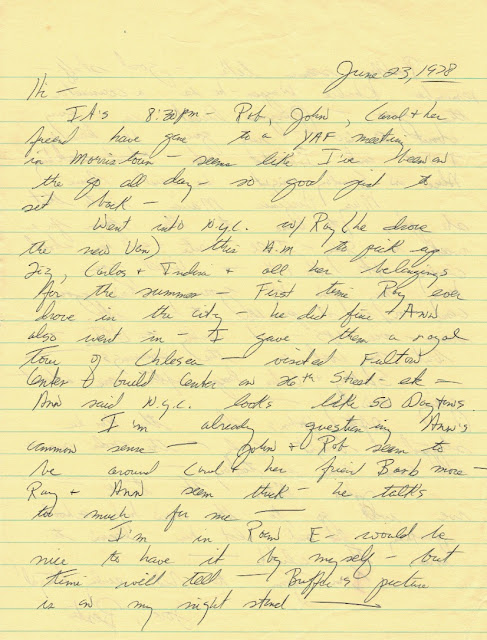 June 23, 1978
Hi —
It's 8:30pm — Rob, John, Carol & her
friend have gone to a YAF meeting
in Morristown — seems like I've been on
the go all day — so good just to
sit back —
Went into N.Y.C. w/ Ray (he drove
the new Van) this A.M. to pick up
Liz, Carlos & Indira & all her belongings
for the summer — First time Ray ever
drove in the city — he did fine & Ann
also went in — I gave them a royal
tour of Chlesea — visited Fulton
Center & build center on 26th Street — etc —
Ann said N.Y.C. looks like 50 Daytons
I'm already questioning Ann's
common sense — John & Rob seem to
be around Carol & her friend Barb more —
Ray & Ann seem thick — he talks
too much for me —
I'm in Room E — would be
nice to have it by myself — but
time will tell — Buffie's picture
is on my night stand —